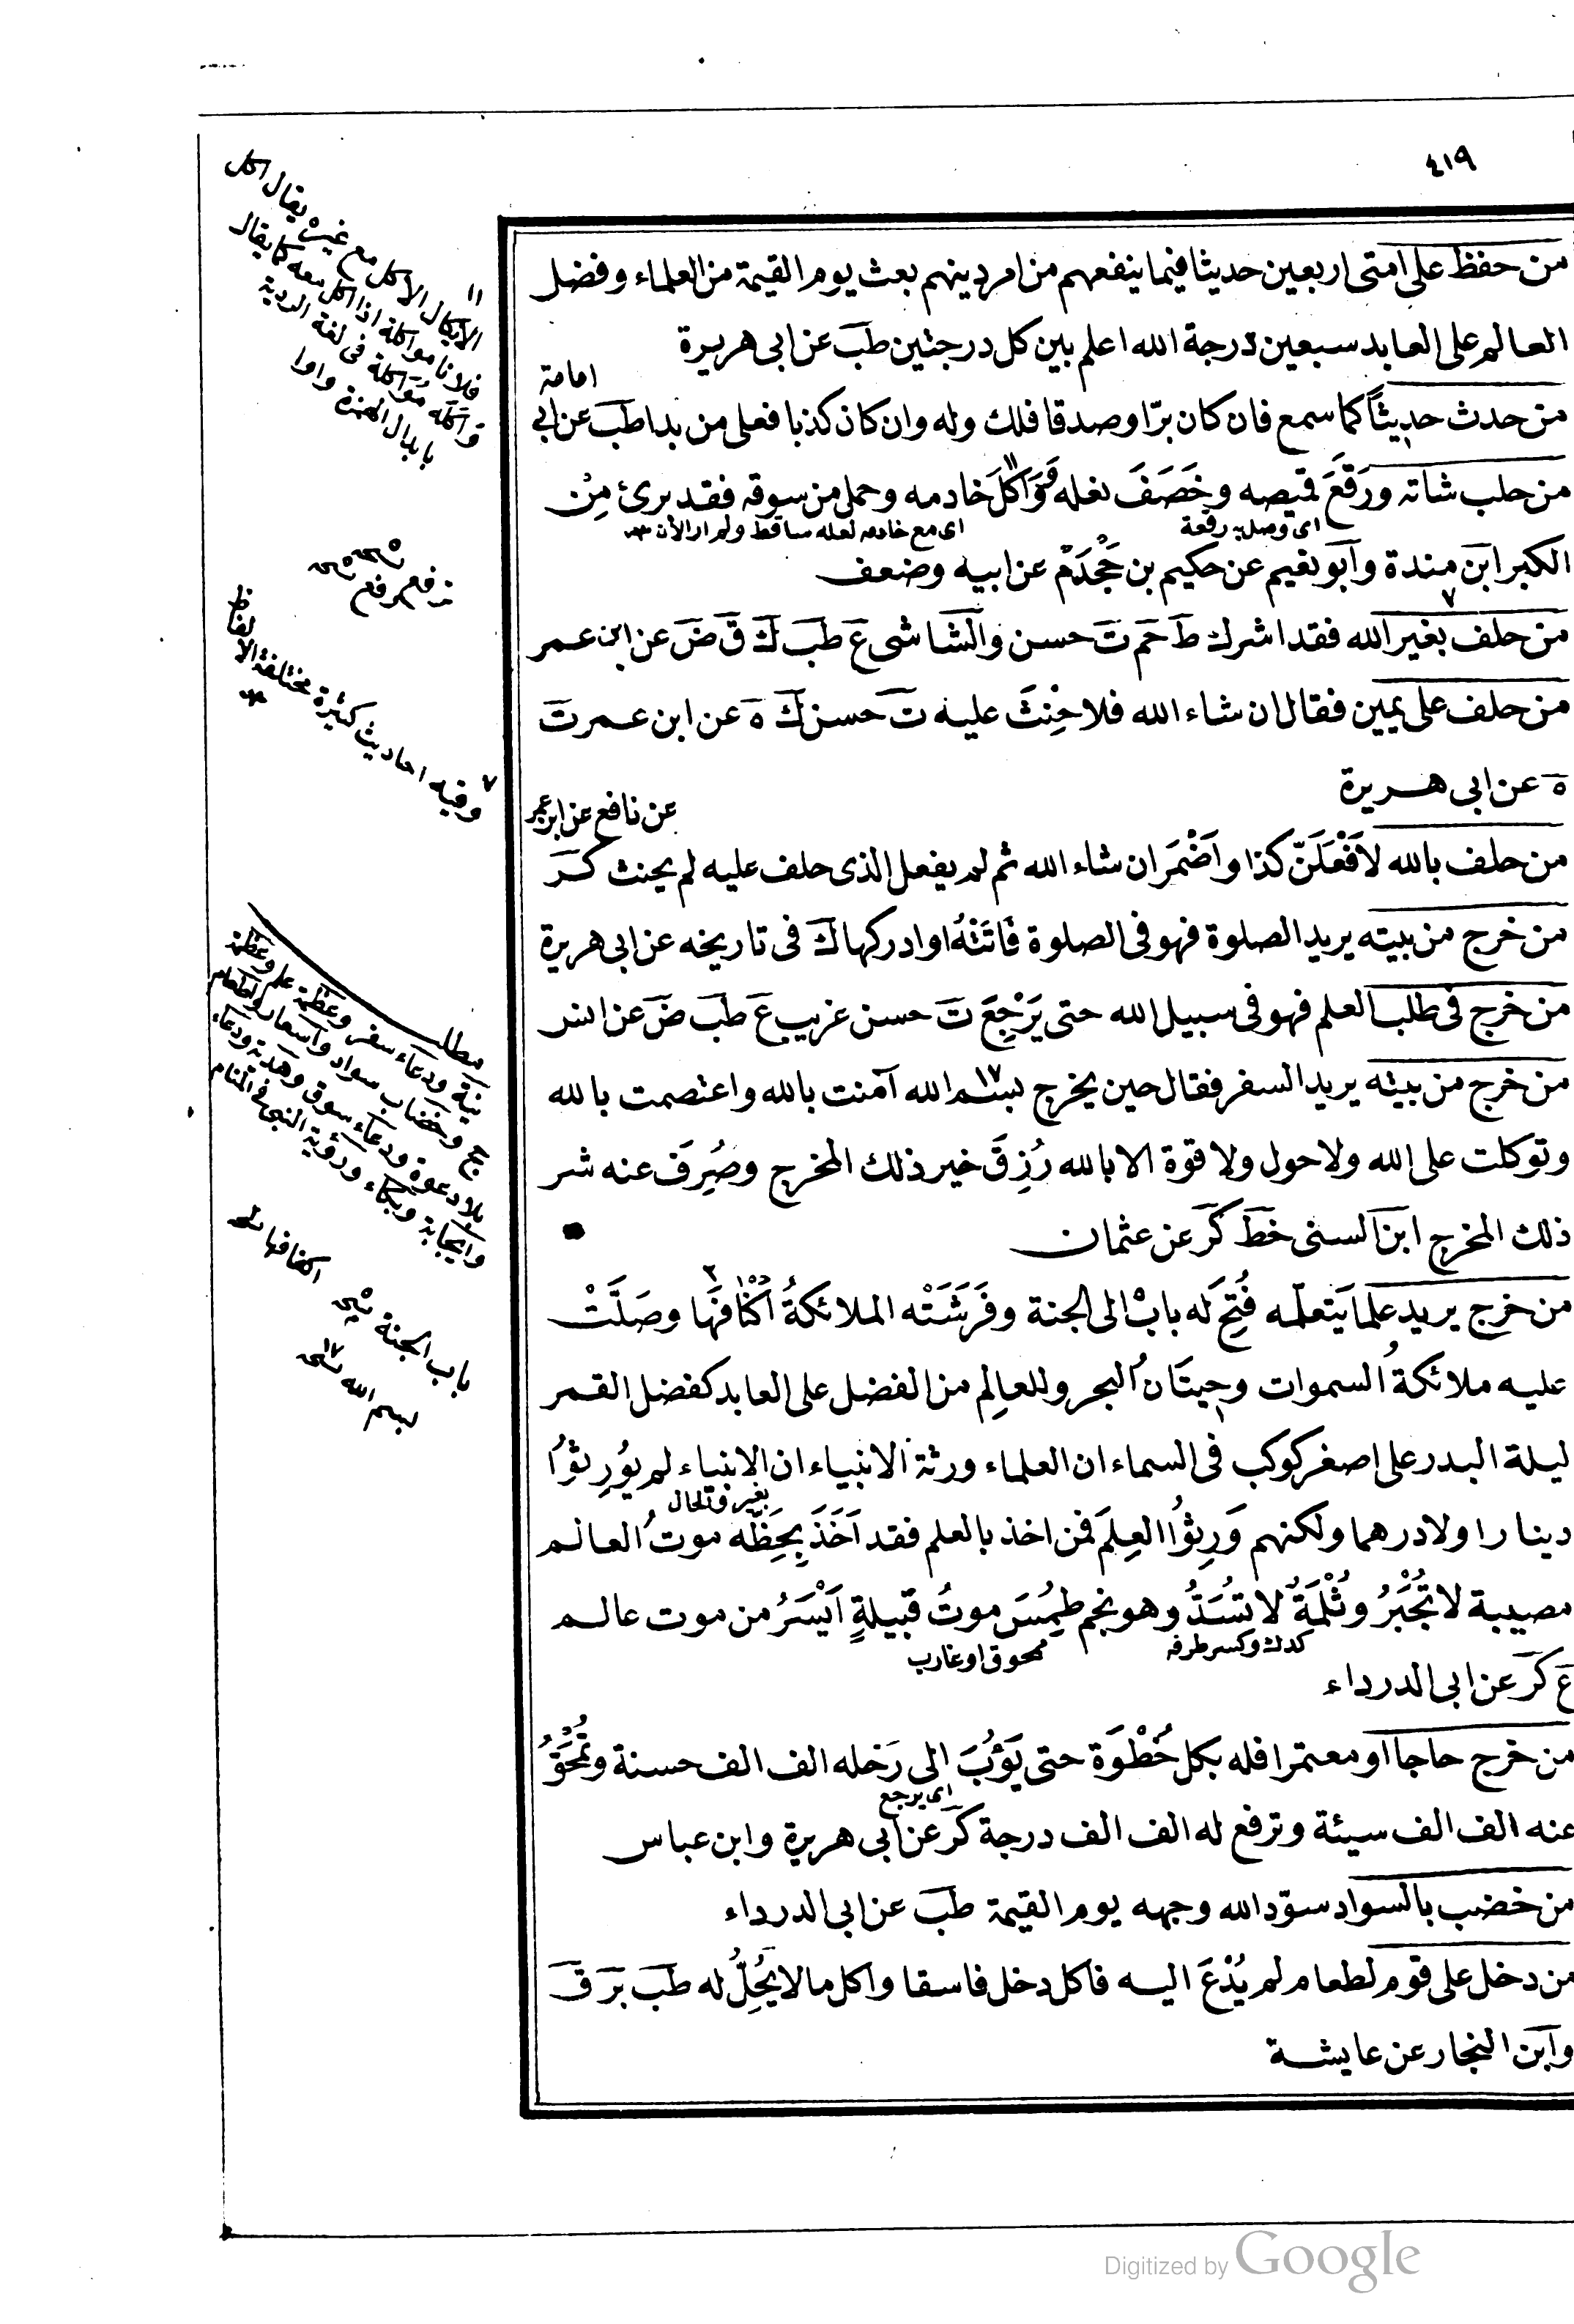 ٤١٩
من حفظ على امتى اربعين حديثا فيما ينفعهم من امر دينهم بعث يوم القيمة من العلماء وفضل
العالم على العابد سبعين درجة الله اعلم بين كل درجتين طب عن ابى هريرة
امامة
من حدث حديثاً كما سمع فان كان برّا وصدقا فلك وله وان كان كذبا فعلى من بدا طب عن ابى
من حلب شاته ورَقَعَ قميصه وخَصَفَ نعله وَوَاكَلَ خادمه وحمل من سوقه فقد برئ مِن
اى وصل به رقعة
اى مع خادمه لعله ساقط ولم ار الأن
الكبر ابن مندة وابو نعيم عن حكيم بن جَحْدَمْ عن ابيه وضعف
من حلف بغير الله فقد اشرك ط حم ت حسن والشاشى ع طب ك ق ض عن ابن عمر
من حلف على يمين فقال ان شاء الله فلا حِنْثَ عليه ت حسن ك ه عن ابن عمر ت
ه عن ابى هريرة
عن نافع عن ابن عمر
من حلف بالله لاَفْعَلَنّ كذا واَضْمَرَ ان شاء الله ثم لم يفعل الذى حلف عليه لم يحنث كر
من خرج من بيته يريد الصلوة فهو فى الصلوة فَاتَتْهُ او ادركها ك فى تاريخه عن ابى هريرة
من خرج فى طلب العلم فهو فى سبيل الله حتى يَرْجِعَ ت حسن غريب ع طب ض عن انس
من خرج من بيته يريد السفر فقال حين يخرج بسم الله آمنت بالله واعتصمت بالله
وتوكلت على الله ولا حول ولا قوة الا بالله رُزِقَ خير ذلك المخرج وصُرِفَ عنه شر
ذلك المخرج ابن السنى خط كر عن عثمان
من خرج يريد علما يَتعلّمه فُتِحَ له بابْ الى الجنة وفَرَشَتْه الملائكةُ اَكْنافَها وصَلَّتْ
عليه ملائكةُ السموات وحِيتَانُ البحر وللعالِم من الفضل على العابد كفضل القمر
ليلة البدر على اصغر كوكب فى السماء ان العلماء ورثة الانبياء ان الانبياء لم يُورِثوُا
دينارا ولا درهما ولكنهم وَرِثوُا العِلمَ فمن اخذ بالعلم فقد اَخَذَ بِحَظِّه موتُ العالم
مصيبة لا تُجْبَرُ وثُلْمَةٌ لا تُسَدُّ وهو نجم طمِسَ موتُ قبيلةٍ اَيْسَرُ من موت عالم
كدك وكسر طرفه
محوق او غارب
ع كر عن ابى الدرداء
من خرج حاجا او معتمرا فله بكل خُطْوَة حتى يَؤُبَ الى رَحله الف الف حسنة وتُمْحَوُ
اى يرجع
عنه الف الف سيئة وترفع له الف الف درجة كر عن ابى هريرة وابن عباس
من خضب بالسواد سوّد الله وجهه يوم القيمة طب عن ابى الدرداء
من دخل على قوم لطعام لم يُدْعَ اليه فاكل دخل فاسقا واكل ما لا يَحِلُّ له طب بز ق
وابن النجار عن عايشة
١١
الايكال الأكل مع غيره يقال اكل
فلانا مواكلة اذا اكل معه كما يقال
وآكله مؤاكلة فى لغة الردية
بابدال الهمزة واوا
ترفع يرفع
٧ وفيه احاديث كثيرة مختلفة الالفاظ
مطلب
نية ودعاء سفر وعظمة علم وعظمة
حج وخضاب سواد واسعار واطعام
بلا دعوة ودعاء سوق وهدية ودعاء
وايجابة وبكاء ورؤية النبى فى المنام
باب الجنة
اكفافها
بسم الله
Digitized by Google